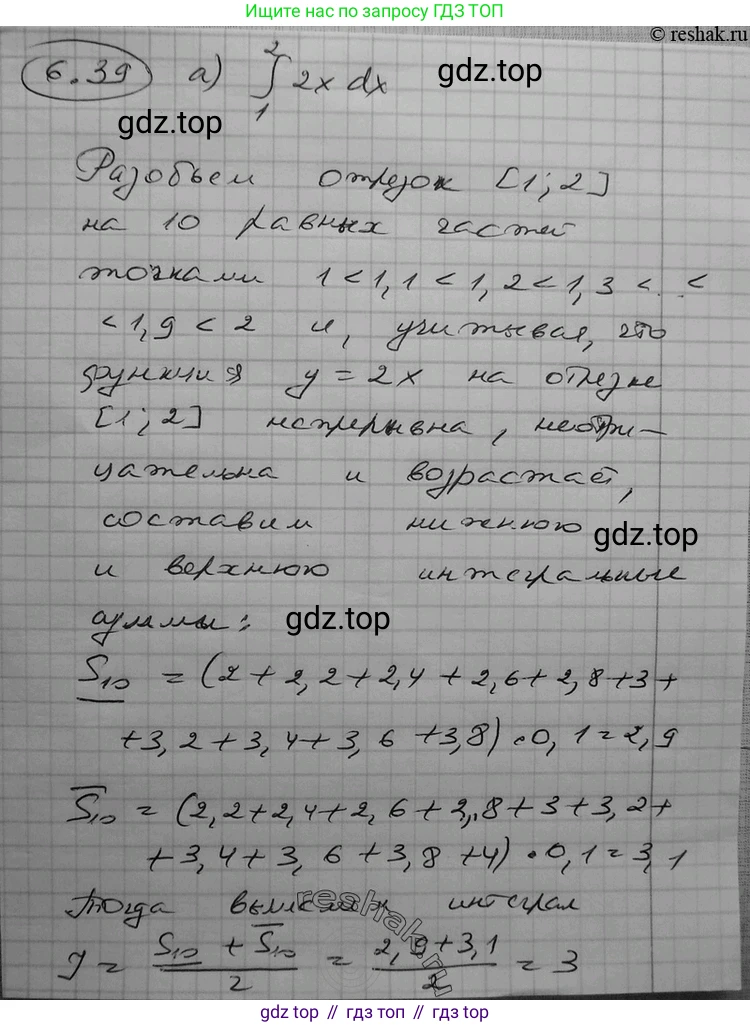 Ищите нас по запросу ГДЗ ТОП
© reshak.ru
6.39 а) ∫₁² 2x dx
gdz.top
gdz.top
Разобьем отрезок [1; 2]
на 10 равных частей
точками 1 < 1,1 < 1,2 < 1,3 < .. <
< 1,9 < 2 и, учитывая, что
функция y = 2x на отрезке
[1; 2] непрерывна, неотри-
цательна и возрастает,
составим нижнюю
gdz.top
и верхнюю интегральные
суммы:
gdz.top
S̲₁₀ = (2 + 2,2 + 2,4 + 2,6 + 2,8 + 3 +
+ 3,2 + 3,4 + 3,6 + 3,8) · 0,1 = 2,9
S̅₁₀ = (2,2 + 2,4 + 2,6 + 2,8 + 3 + 3,2 +
+ 3,4 + 3,6 + 3,8 + 4) · 0,1 = 3,1
Тогда интеграл
reshak.ru
J = (S̲₁₀ + S̅₁₀)/2 = (2,9 + 3,1)/2 = 3
gdz.top // гдз.топ // gdz.top // гдз.топ // gdz.top